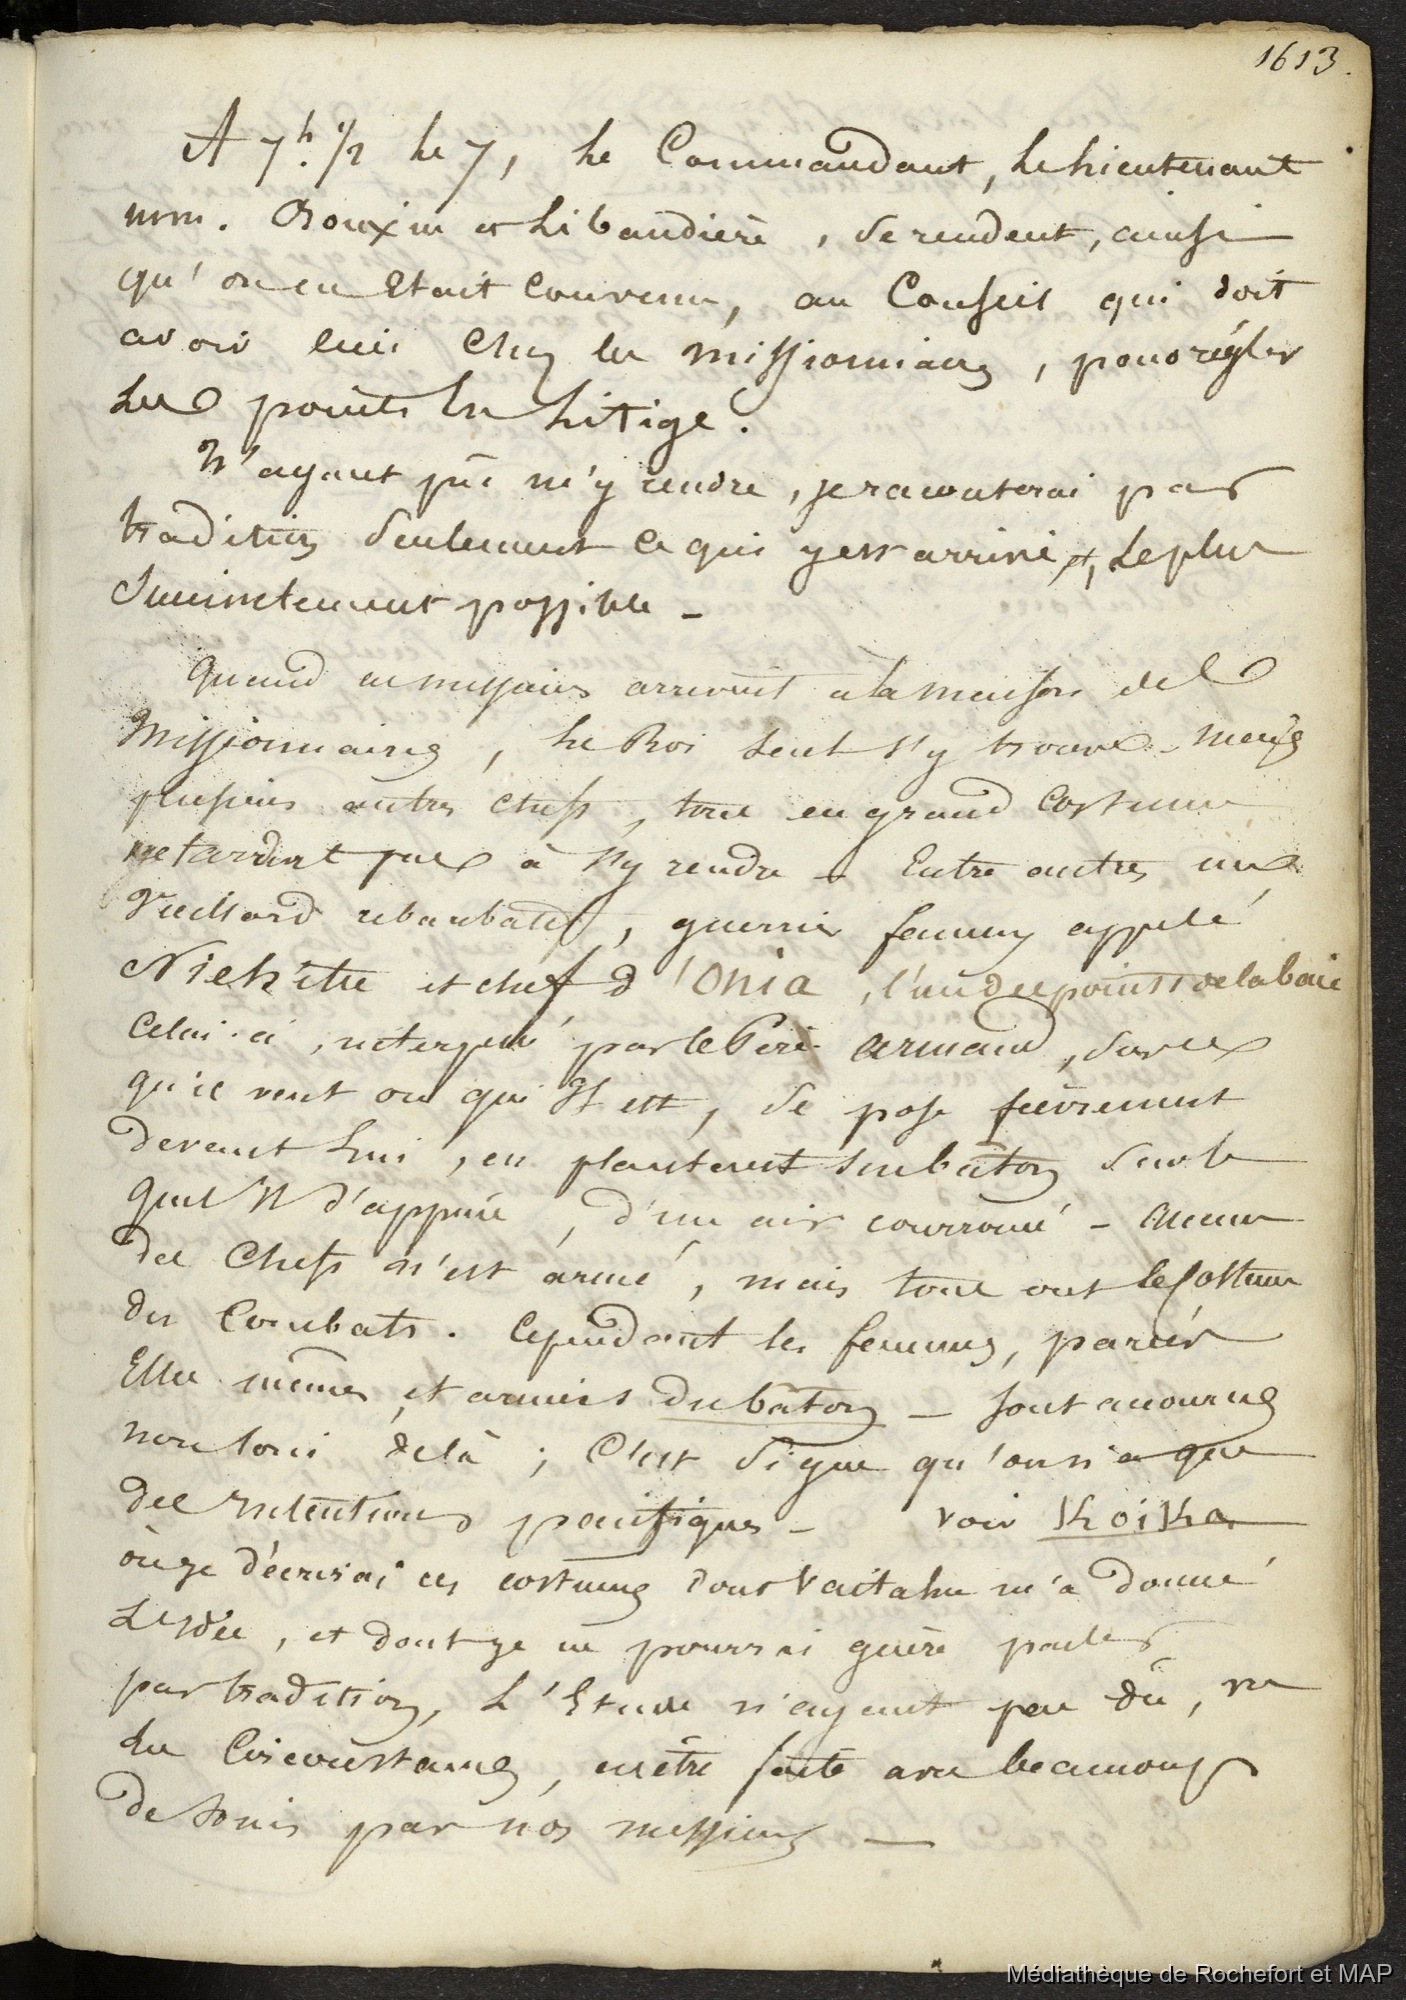 1613.
A 7h. 1/2 le 7, le Commandant, le Lieutenant
mm. Rouxin et Libaudière, se rendent, ainsi
qu'on en était convenu, au Conseil qui doit
avoir lieu chez les missionnaires, pour régler
les points en litige.
N'ayant pû m'y rendre, je raconterai par
tradition seulement ce qui y est arrivé, le plus
succinctement possible -
Quand ces messieurs arrivent à la maison des
Missionnaires, le Roi seul s'y trouve - mais
plusieurs autres chefs, tous en grand costume
ne tardent pas à s'y rendre - Entre autres un
Vieillard rébarbatif, guerrier fameux appelé
et chef d'Onia, l'un des points de la baie
Celui-ci, interpellé par le Père Armand, sur ce
qu'il veut ou qui Il est, se pose fièrement
devant Lui, en plantant son bâton sur le
quel Il s'appuie, d'un air courroucé - Aucun
des Chefs n'est armé, mais tous ont le Costume
des Combats. Cependant les femmes, parées
Elles mêmes et armées du bâton - sont accourues
non loin delà ; C'est signe qu'on n'a que
des Intentions pacifiques - voir Koika
où je décrirai ces costumes dont Vaitahu m'a donné
L'Idée, et dont je ne pourrai guère parler
par tradition, L'Etude n'ayant pas dû, vu
les Circonstances, en être faite avec beaucoup
de soins par nos messieurs -
Médiathèque de Rochefort et MAP